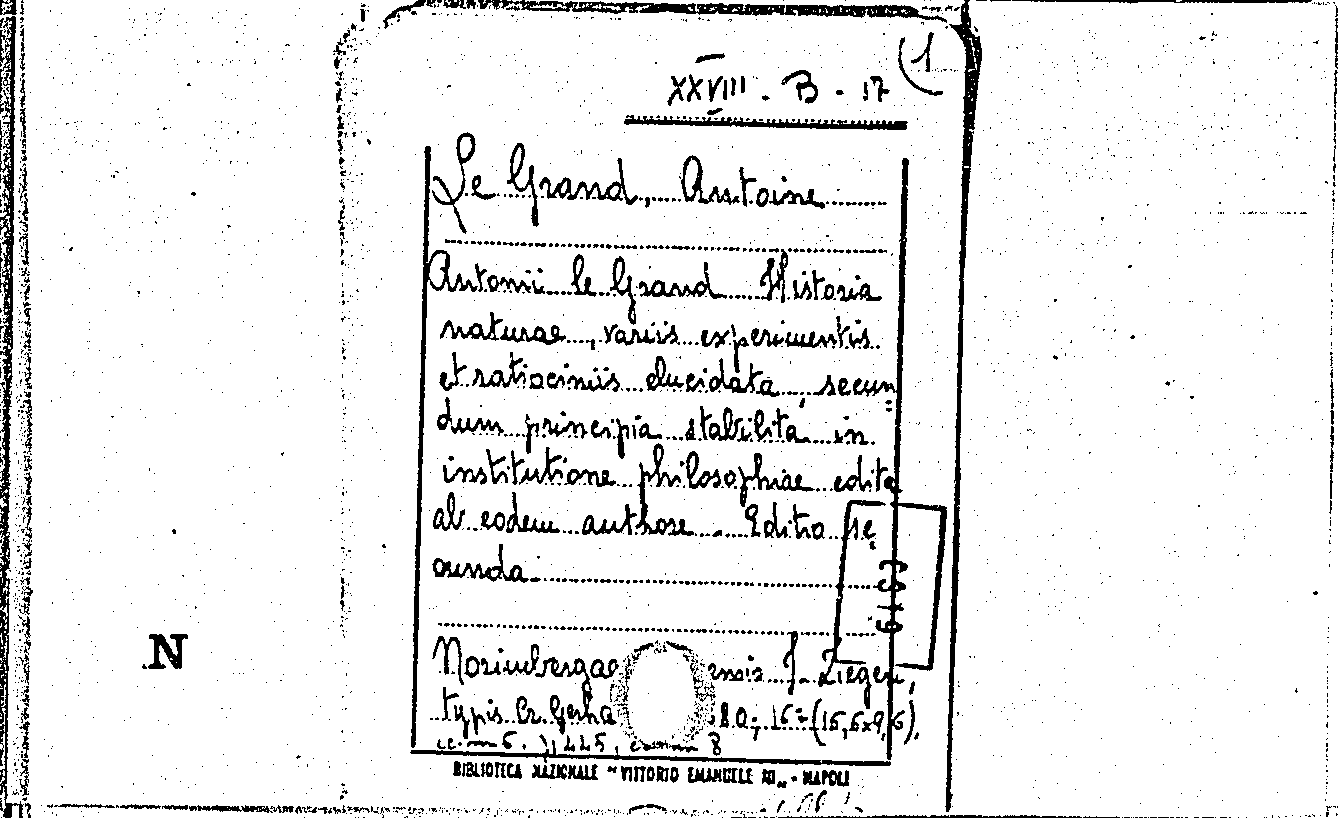 1
XXVIII . B . 17
Le Grand, Antoine
Antonii le Grand Historia
naturae, variis experimentis
et ratiociniis elucidata, secun
dum principia stabilita in
institutione philosophiae edita
ab eodem authore. Editio se
cunda
Norimbergae ensis J. Zieger,
typis Cr. Gerha 16° (15,6x9,6).
N
BIBLIOTECA NAZIONALE "VITTORIO EMANUELE III" - NAPOLI